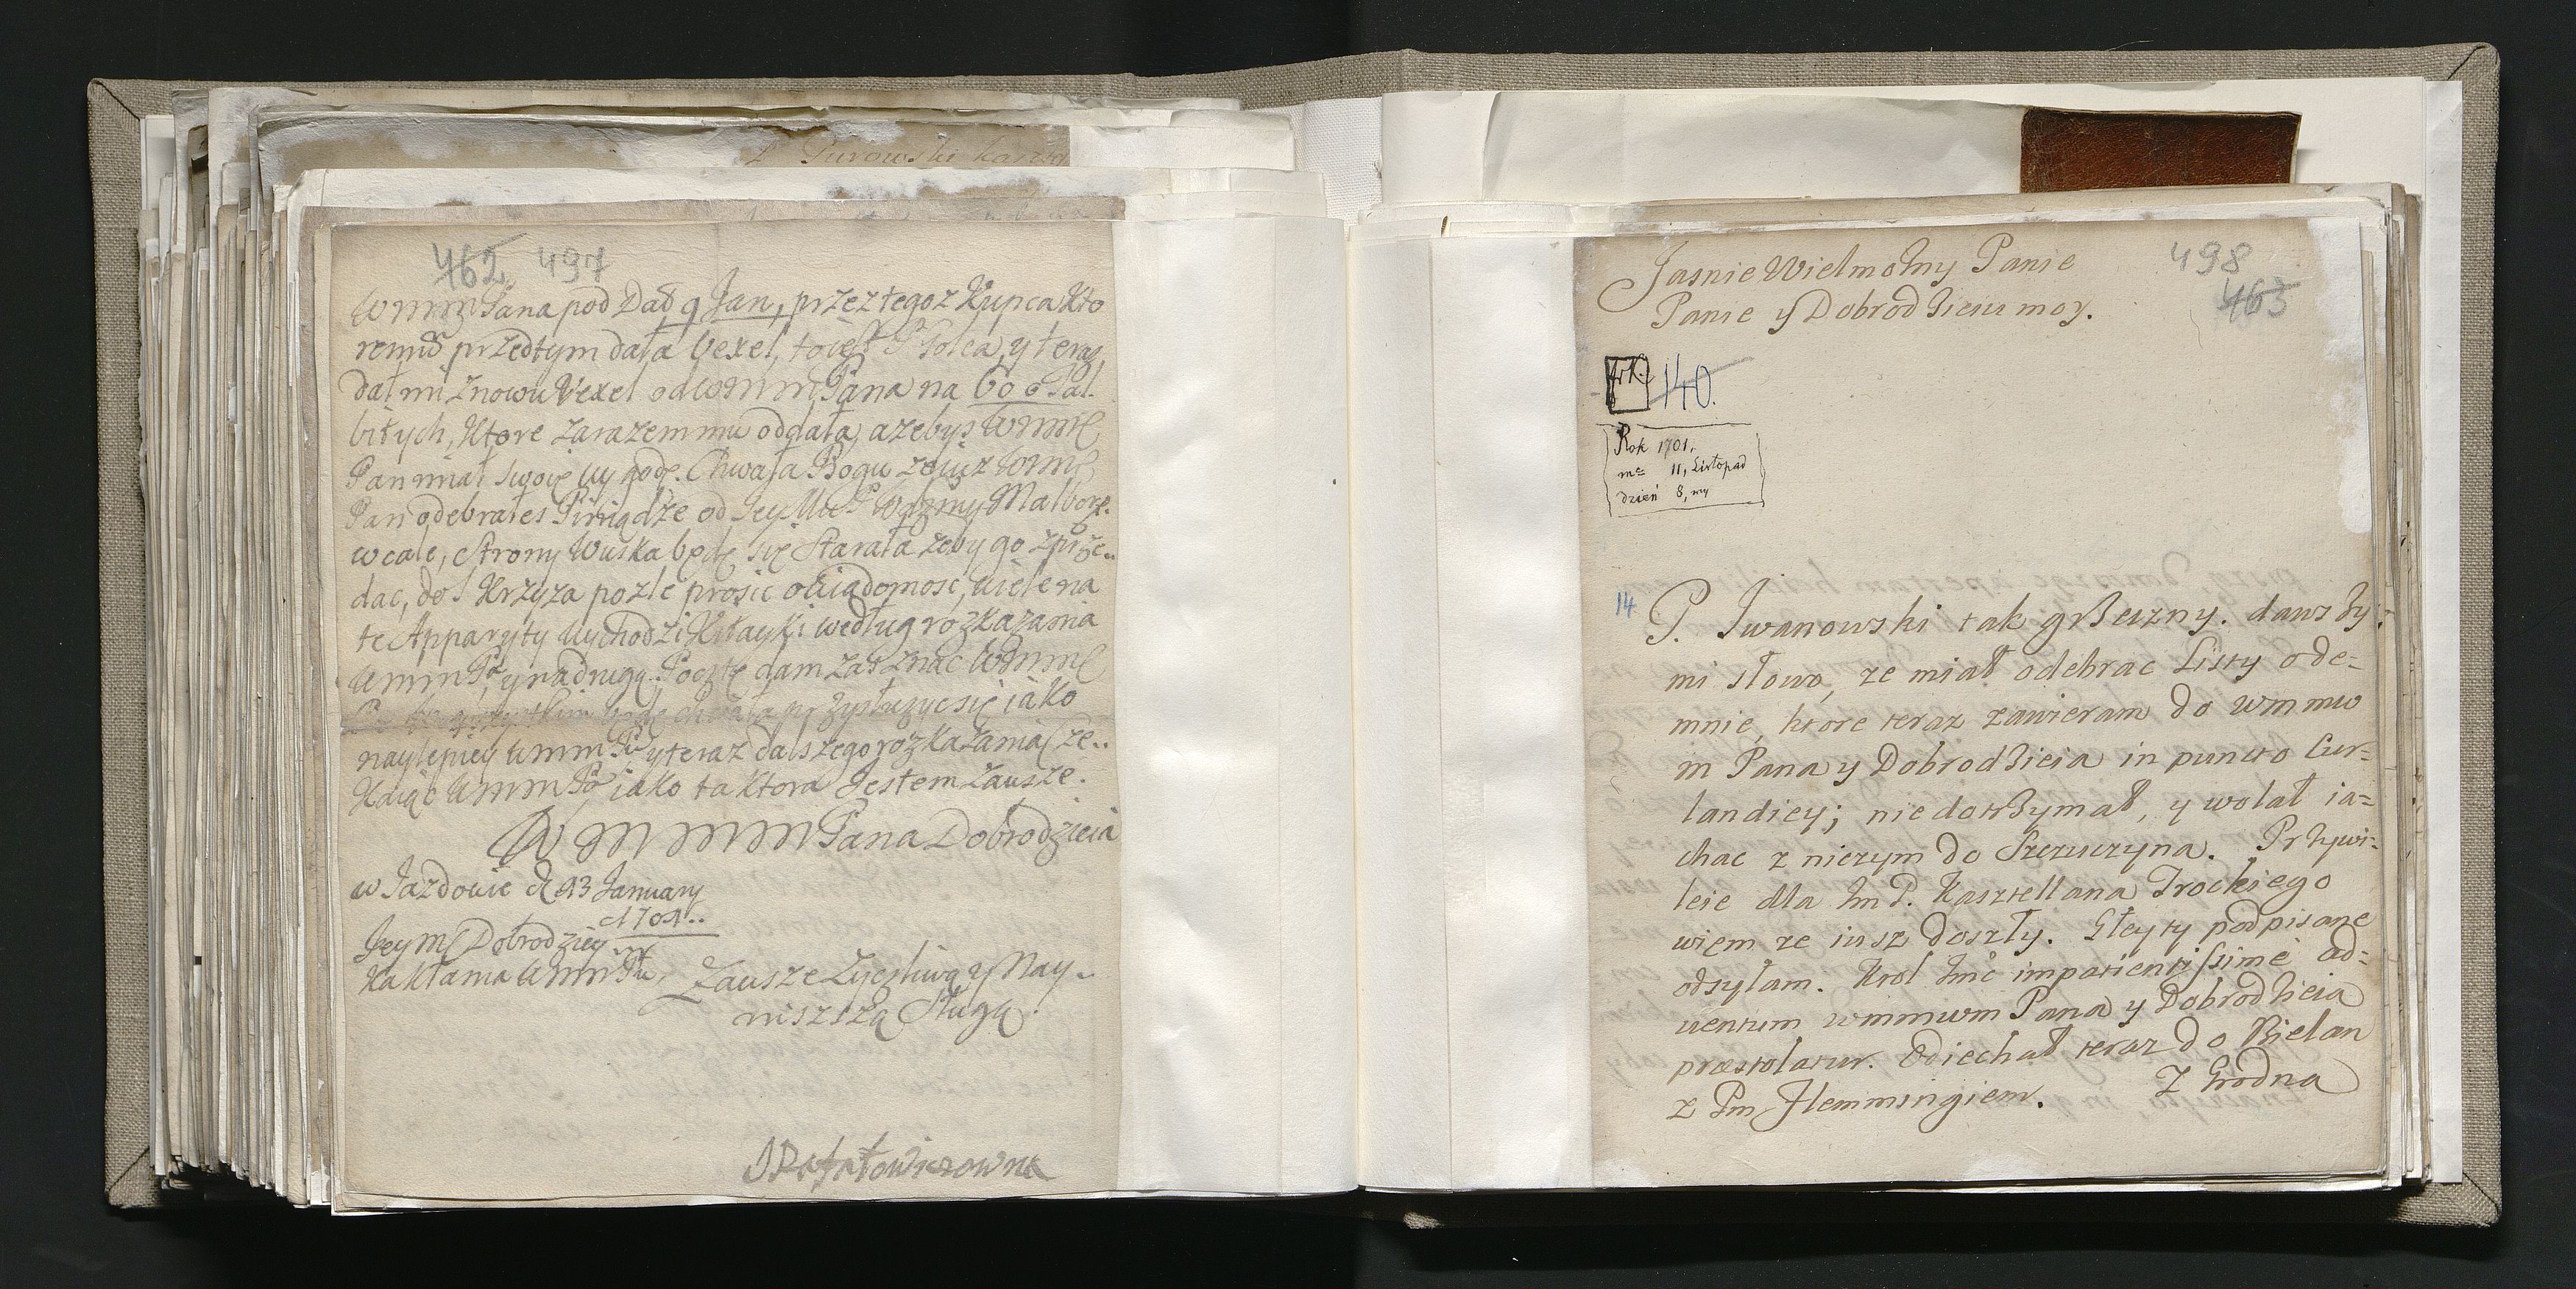 P Purowski
462 497
WMM Pana pod Dat 9 Jan, przez tegoz Kupca Kto
remu przedtym data Vexel, y teraz
dał mi znowu Vexel od WMM Pana na 600 Tal.
bitych, Ktore zarazem mu oddała, azebys WMM
Pan miał swoię wygodę. Chwała Bogu ze iuz WMM
Pan odebrałes Piniądze od Jey Mci P Malbor.
wcale, Strony Wuska będę się Starała zeby go zprze..
dac, do Krzyza pozle prosic o wiadomosc, wiele na
te Apparaty wychodzi Kitayki według rozkazania
WMM Pa, y na drugą Pocztę dam zas znac WMM
przysłuzyc się iako
naylepiey WMM Pu y teraz dalszego rozkazania Cze..
Kaiąc WMM Pa iako ta Ktora Jestem Zausze.
W M M M Pana Dobrodzieia
w Jazdowie d 13 January
1701..
Jey Mc Dobrodziey
Kakłania WMM Pu, Zausze Zyczliwą y Nay-
niszszą Sługą.
Rafałowiczowna
Jasnie Wielmozny Panie
Panie y Dobrodzieiu moy.
498
463
140.
Rok 1701.
mc 11, Listopad
dzień 8, my
14
P. Iwanowski tak grzeczny. dawszy
mi słowo, ze miał odebrac Listy ode=
mnie, ktore teraz zawieram do wmmw
m Pana y Dobrodzieia in puncto Cur-
landiey; nie dotrzymał, y wolał ia=
chac z niczym do Szczuczyna. Przywi-
leie dla Im P. Kasztellana Trockiego
wiem ze iusz doszły. Gleyty podpisane
odsyłam. Krol Jmc impatientissime ad=
uentum wmmwm Pana y Dobrodzieia
præstolatur. Odiechał teraz do Bielan
z Pm Flemmingiem. Z Grodna